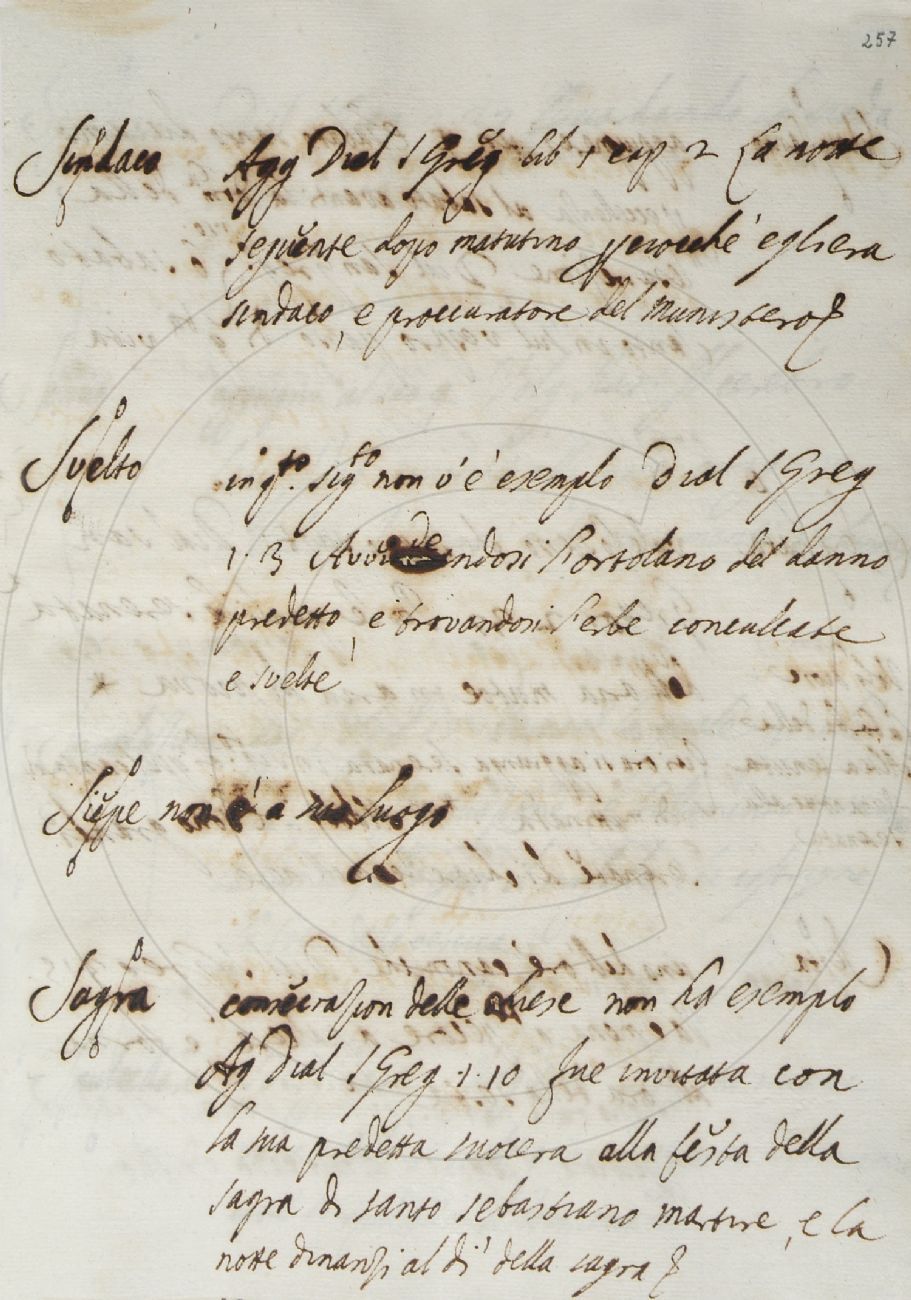 257
Sindaco Agg Dial S Greg lib 1 cap 2 La notte
seguente dopo matutino perocche' egli era
sindaco, e proccuratore del munistero
Svelto in q.to sig.to non v'è esempio Dial S Greg
1. 3 Avvedendosi l'ortolano del danno
predetto, e trovandosi l'erbe conculcate
e svelte
Siepe non è a suo luogo
Sagra consecrazion delle chiese non ha esempio
Ag Dial S Greg 1. 10 fue invitata con
la sua predetta suocera alla festa della
sagra di santo Sebastiano martire, e la
notte dinanzi al dì della sagra